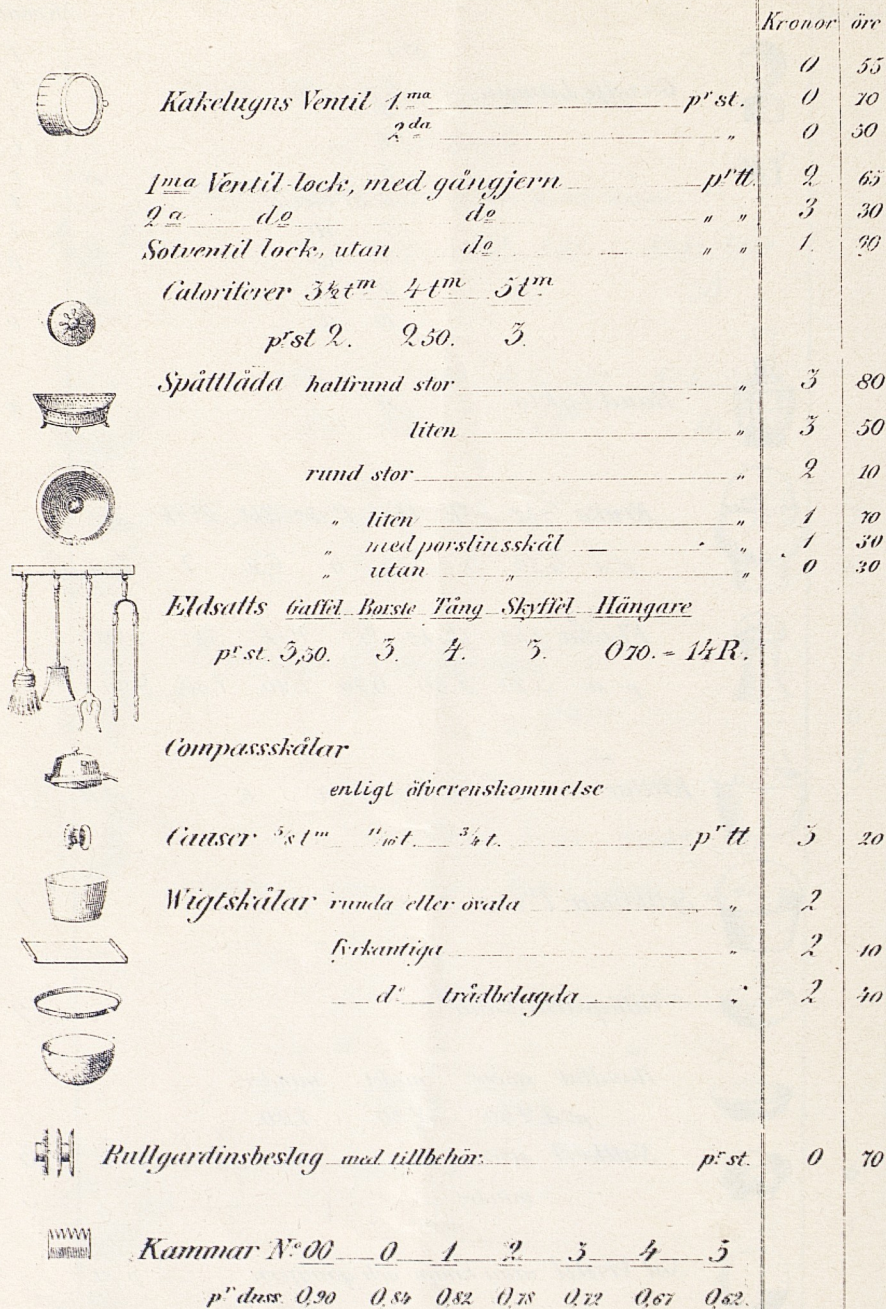 Kronor öre
0 55
Kakelugns Ventil 1.ma pr st. 0 70
2da " 0 50
1ma Ventil-lock, med gångjern pr tt. 2 65
2a do do " " 3 30
Sotventil lock, utan do " " 1. 90
Caloriferer 3½tm 4tm 5tm
pr st 2. 2 50. 3.
Spåttlåda halfrund stor " 3 80
liten " 3 50
rund stor " 2 10
" liten " 1 70
" med porslinsskål " 1 30
" utan " " 0 30
Eldsatts Gaffel Borste Tång Skyffel Hängare
pr st. 3,30. 3. 4. 3. 0 70. = 14 R.
Compassskålar
enligt öfverenskommelse
Causer 5/8 tm 11/16 t. 3/4 t. pr tt 3 20
Wigtskålar runda eller ovala " 2
fyrkantiga " 2 10
do trådbelagda " 2 40
Rullgardinsbeslag med tillbehör pr st. 0 70
Kammar No 00 0 1 2 3 4 5
pr duss. 0,90 0,84 0,82 0,78 0,72 0,67 0,62